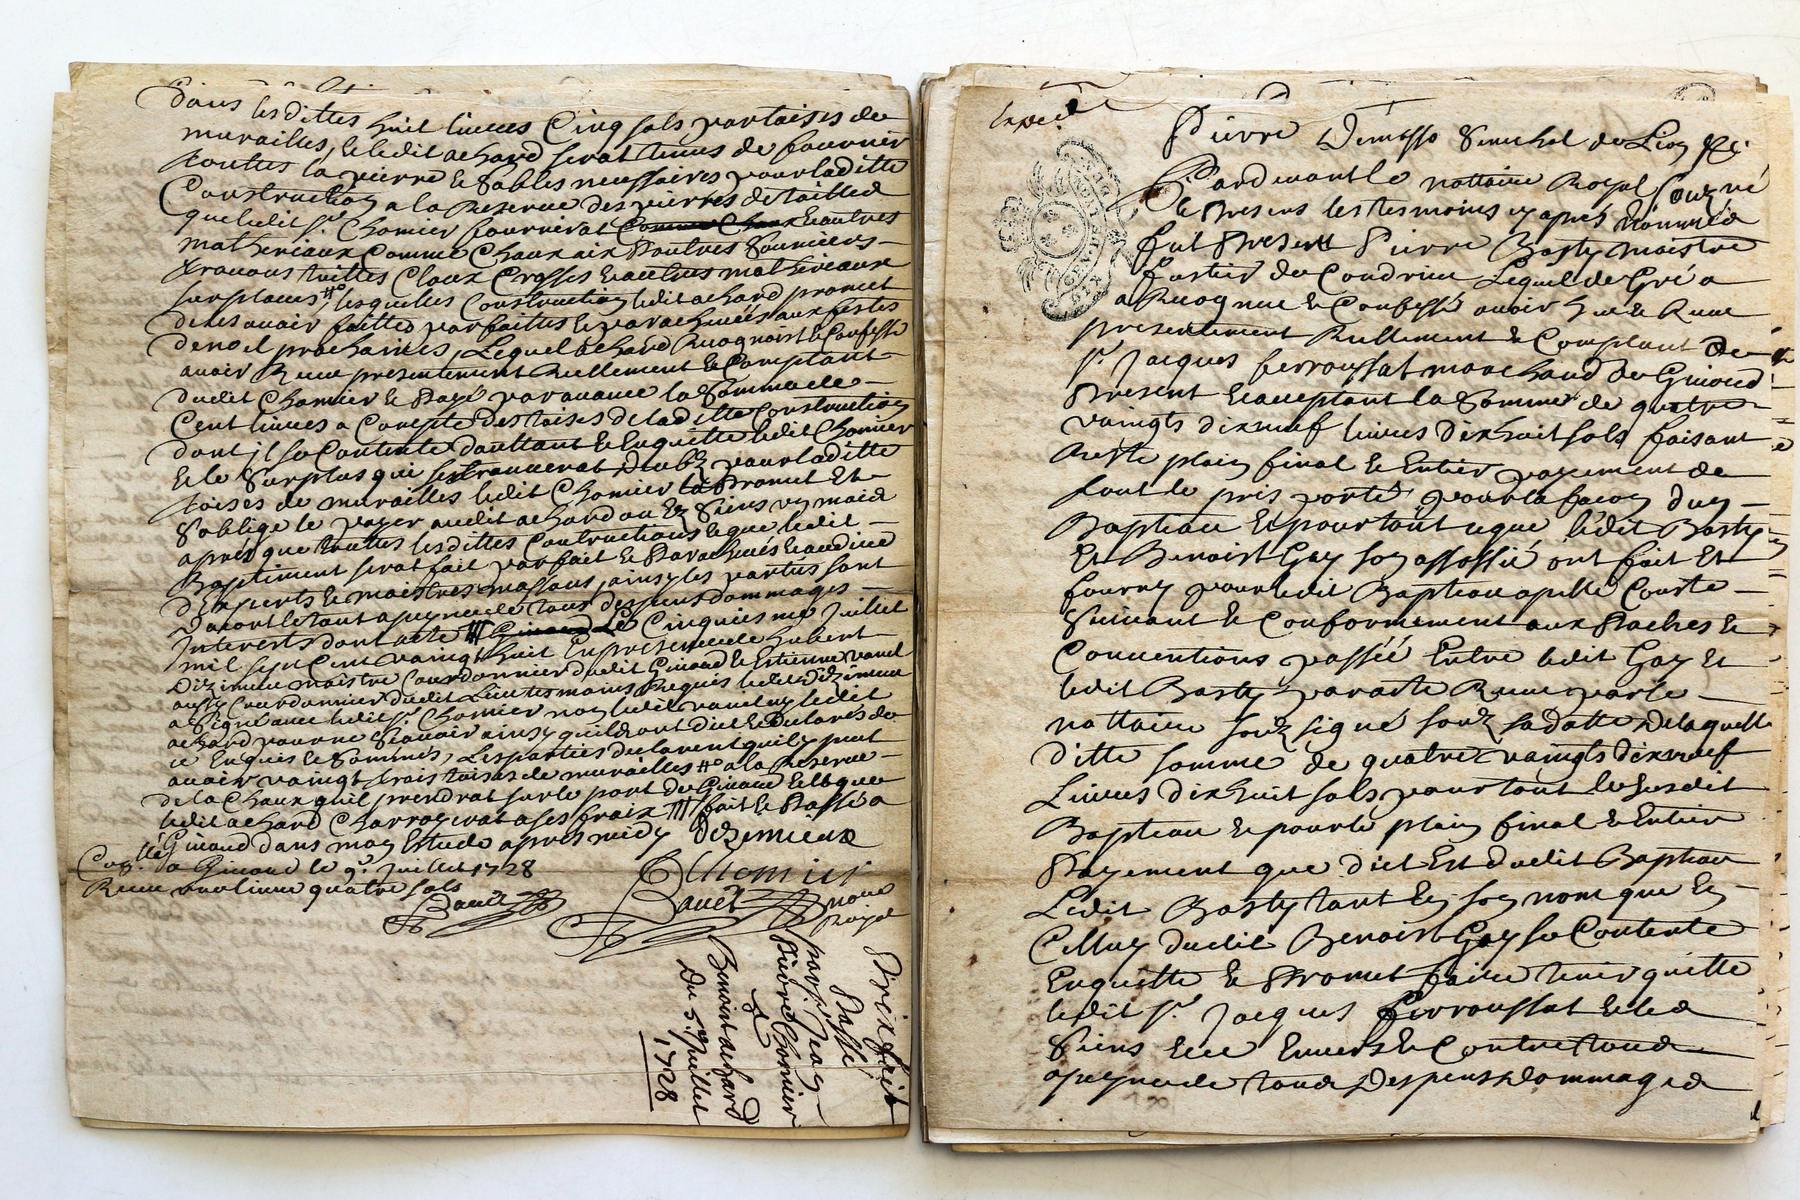 dans lesdittes huit livres Cinq sols par toises de
murailles, et ledit achard serat tenus de fournir
touttes la pierre & sables nessaires pour laditte
Construction a la Reserve des pierres de tailles
que ledit sr. Chomier fournirat Comme Chaux & autres
matheriaux Comme Chaux aix & autres
travons tuilles Cloux Crosses & autres matheriaux
sur places, lesquelles Construction ledit achard promet
de les avoir faittes parfaittes & parachevées aux festes
de noel prochaines, Lequel achard Recognoist & Confesse
avoir Receu presentement Reellement & Comptant
dudit Chomier & payé par avance la Somme de
Cent livres a Compte des toises de laditte Construction
dont il se Contente d'auttant & En quitte ledit Chomier
& le Surplus qui se trouverat deub pour laditte
toises de murailles ledit Chomier Promet Et
s'oblige le payer audit achard ou Es Siens
apres que touttes lesdittes Contructions & que ledit
Baptiment serat fait parfait & Parachevés
d'Experts & maistres massons, ainsy les parties sont
d'acort le tout a peyne de tous despens dommages
Interests dont acte Cinquiesme Juillet
mil sept Cent vaingt huit En presence de hubert
Dizimieu maistre Courdonnier dudit Givord & Estienne
aussy Courdonnier dudit Lieu tesmoins Requis ledit Dizimieu
a signé avec ledit sr. Chomier non ledit ny ledit
achard pour ne Scavoir ainsy quils ont dict & declarés de
ce Enquis & Sommés, Les parties declarent quil y peut
avoir vaingt trois toises de murailles a la Reserve
de la Chaux quil prendrat sur le port de Givord & laque
ledit achard Charroyerat a ses fraix fait & Passé a
Givord dans mon Estude apres midy Dezimieux
Conllé a Givord le 9e. Juillet 1728
Receu une livre quatre sols
Chomier
Bauet
Bauet nore
Royal
Prix fait
Passé
par Jean
Pierre Chomier
&
Benoist achard
Du 5e Juillet
1728
Exped
Pierre Senechal de Lion &c.
Pardevant le nottaire Royal Souzné
& Presens les tesmoins cy aprés nommés
fut Present Pierre Basty maistre
fustier de Condrieu Lequel de Gré a
a Recognue & Confessé avoir heu & Receu
presentement Reellement & Comptant de
sr. Jacques ferroussat marchand de Givord
Present & acceptant la Somme de quattre
vaingts dix neuf livres dix huit sols faisant
Reste plain final & Entier payement de
tout le pris porté pour la façon d'un
Bapteau & pour tout ce que ledit Basty
Et Benoist Gay son assossié ont fait Et
fourny pour ledit Bapteau apellé Couste
Suivant & Conformement aux Paches &
Conventions passéé Entre ledit Gay Et
ledit Basty par acte Receu par le
nottaire souz signé souz sa datte de laquelle
ditte somme de quatre vaingts dix neuf
Livres dix huit sols pour tout le susdit
Bapteau & pour le plain final & Entier
Payement que dict Est dudit Bapteau
Ledit Basty tant En son nom que En
Celluy dudit Benoist Gay se Contente
Enquitte & Promet faire tenir quitte
ledit sr. Jacques ferroussat & les
Siens Envers & Contre tous
a peyne de tous Despens dommages